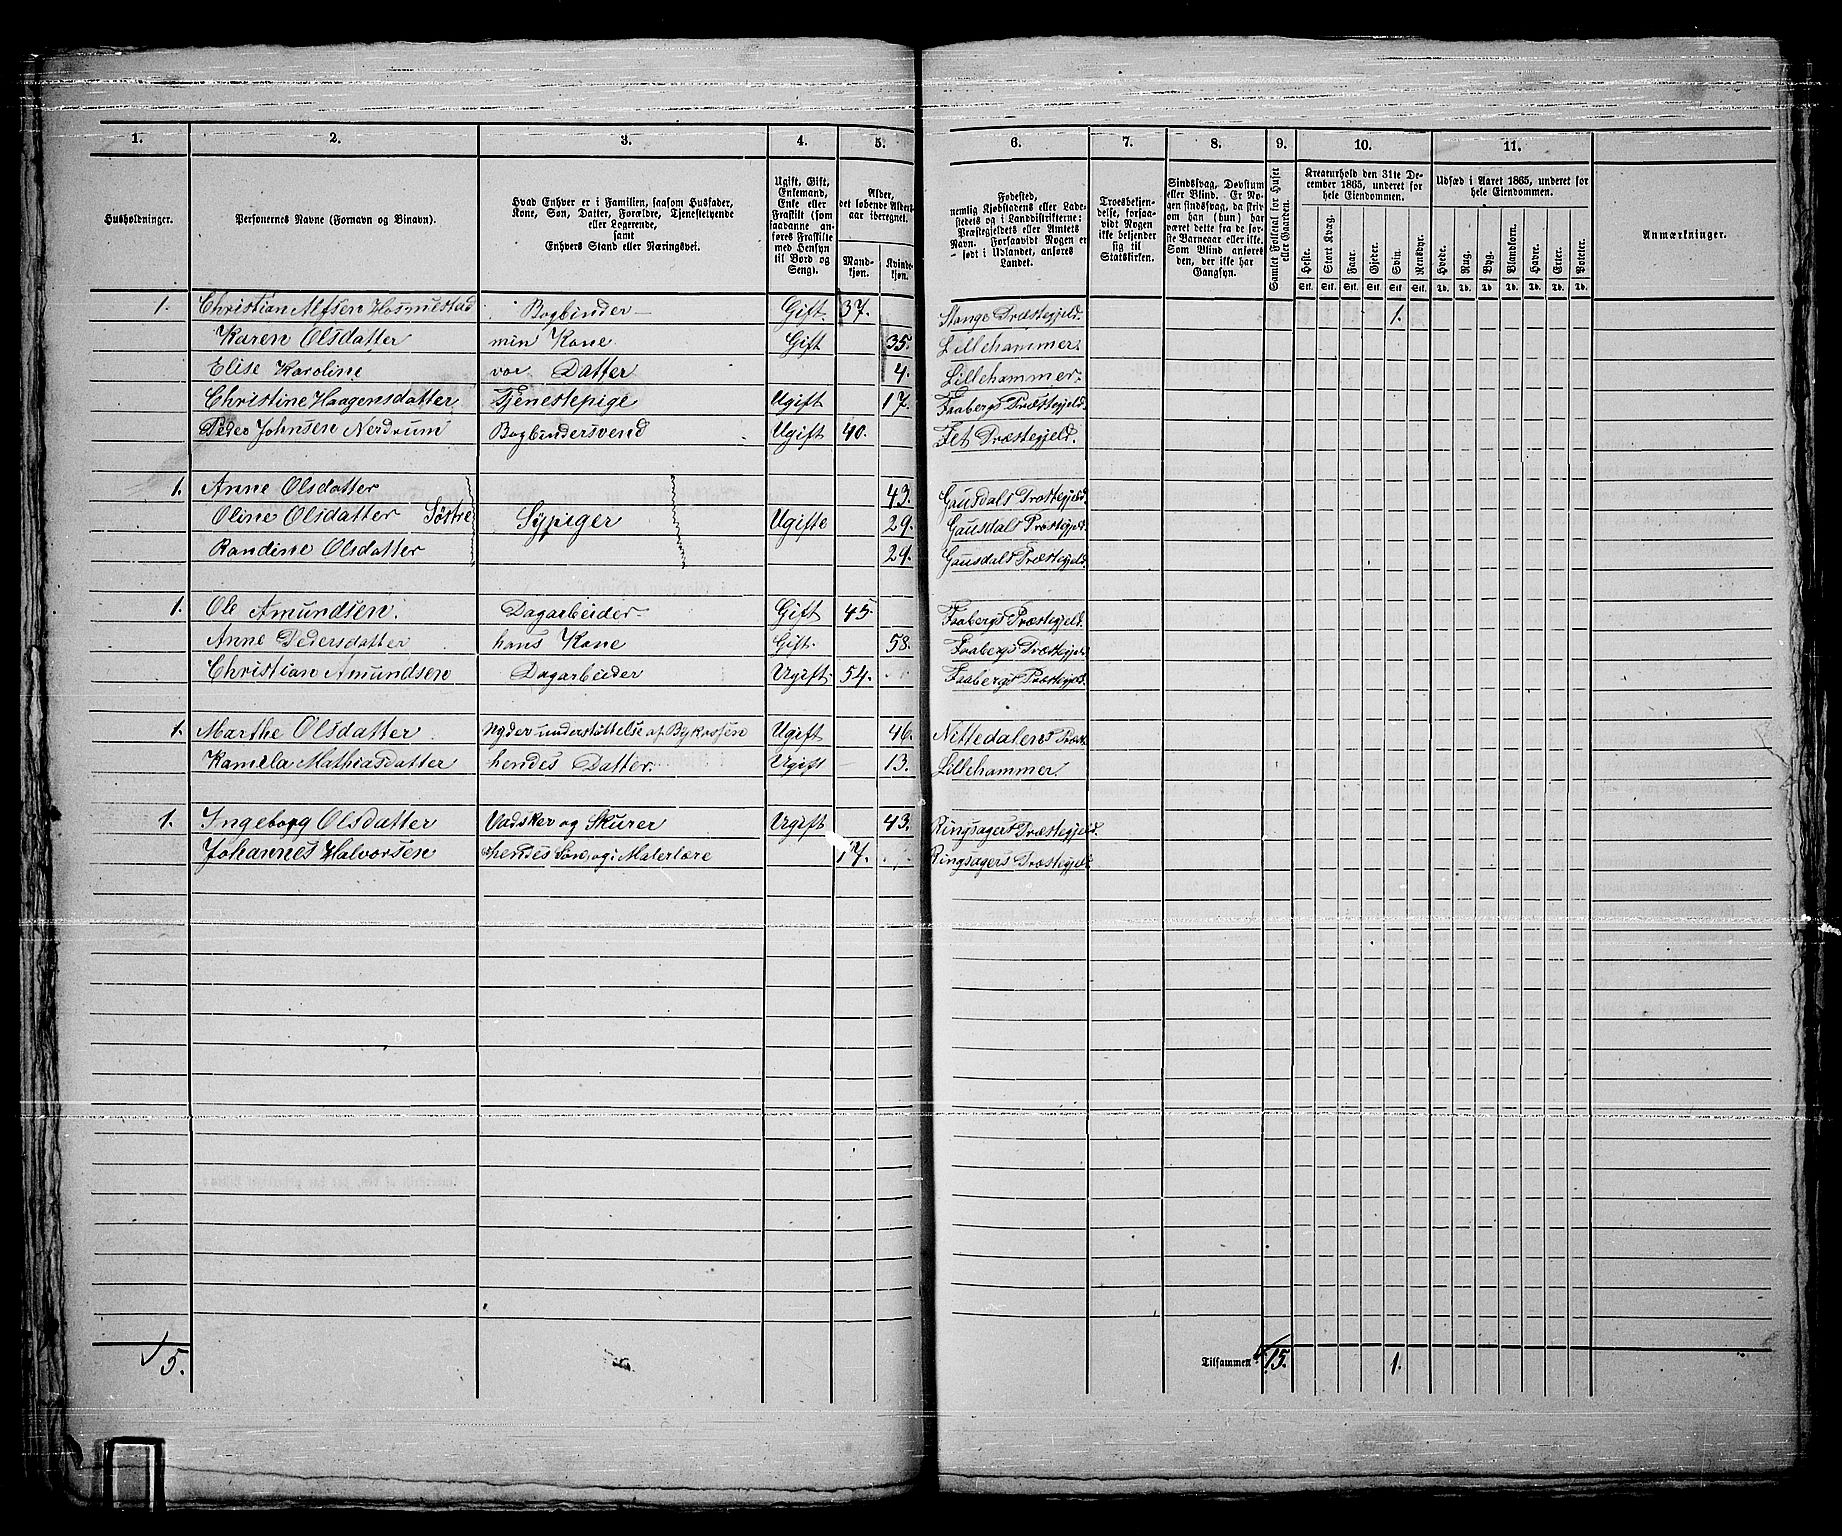 1. 2. 3. 4. 5. 6. 7. 8. 9. 10. 11.
Husholdninger.
Personernes Navne (Fornavn og Binavn).
Hvad Enhver er i Familien, saasom Husfader,
Kone, Søn, Datter, Forældre, Tjenestetyende
eller Logerende,
samt
Enhvers Stand eller Næringsvei.
Ugift, Gift,
Enkemand,
Enke eller
Fraskilt (som
saadanne an-
føres Fraskilte
med Hensyn
til Bord og
Seng).
Alder,
det løbende Alders-
aar iberegnet.
Mand-
kjøn.
Kvinde-
kjøn.
Fødested,
nemlig Kjøbstadens eller Lade-
stedets og i Landdistrikterne:
Præstegjeldets eller Amtets
Navn. Forsaavidt Nogen er
født i Udlandet, anføres
Landet.
Troesbekjen-
delse, forsaa-
vidt Nogen
ikke bekjender
sig til
Statskirken.
Sindssvag, Døvstum
eller Blind. Er No-
gen sindssvag, da skriv
om han (hun) har
været dette fra de før-
ste Barneaar eller ikke.
Som Blind anføres
den, der ikke har
Gangsyn.
Samlet Folketal for Huset
eller Gaarden.
Kreaturhold den 31te De-
cember 1865, underet for
hele Eiendommen.
Heste. Stort Kvæg. Faar. Gjeder. Svin. Rensdyr.
Stk. Stk. Stk. Stk. Stk. Stk.
Udsæd i Aaret 1865, underet for
hele Eiendommen.
Hvede. Rug. Byg. Blandkorn. Havre. Erter. Poteter.
Td. Td. Td. Td. Td. Td. Td.
Anmærkninger.
1. Christian Alfsen Bogbinder Gift. 37. Stange Præstegjeld. 1.
Karen Olsdatter min Kone Gift 35. Lillehammer.
Elise Karoline vor Datter 4. Lillehammer.
Christine Haagensdatter Tjenestepige Ugift 17. Faabergs Præstegjeld.
Peder Johnsen Nerdrum Bogbindersvend Ugift 40. Fet Præstegjeld.
1. Anne Olsdatter 43. Gausdals Præstegjeld.
Oline Olsdatter Søstre Sypiger Ugifte 29. Gausdals Præstegjeld.
Randine Olsdatter 29. Gausdals Præstegjeld.
1. Ole Amundsen. Dagarbeider Gift 45. Faabergs Præstegjeld.
Anne Pedersdatter hans Kone Gift. 58. Faabergs Præstegjeld
Christian Amundsen Dagarbeider Ugift. 54. Faabergs Præstegjeld.
1. Marthe Olsdatter. nyder understøttelse af Bykassen Ugift 46. Nittedalens Præst.
Kamilla Mathiasdatter hendes Datter. Ugift 13. Lillehammer.
1. Ingeborg Olsdatter Vadsker og Skurer Ugift 43. Ringsagers Præstegjeld.
Johannes Halvorsen hendes Søn, og i Malerlære 17. Ringsagers Præstegjeld
5. Tilsammen 15. 1.